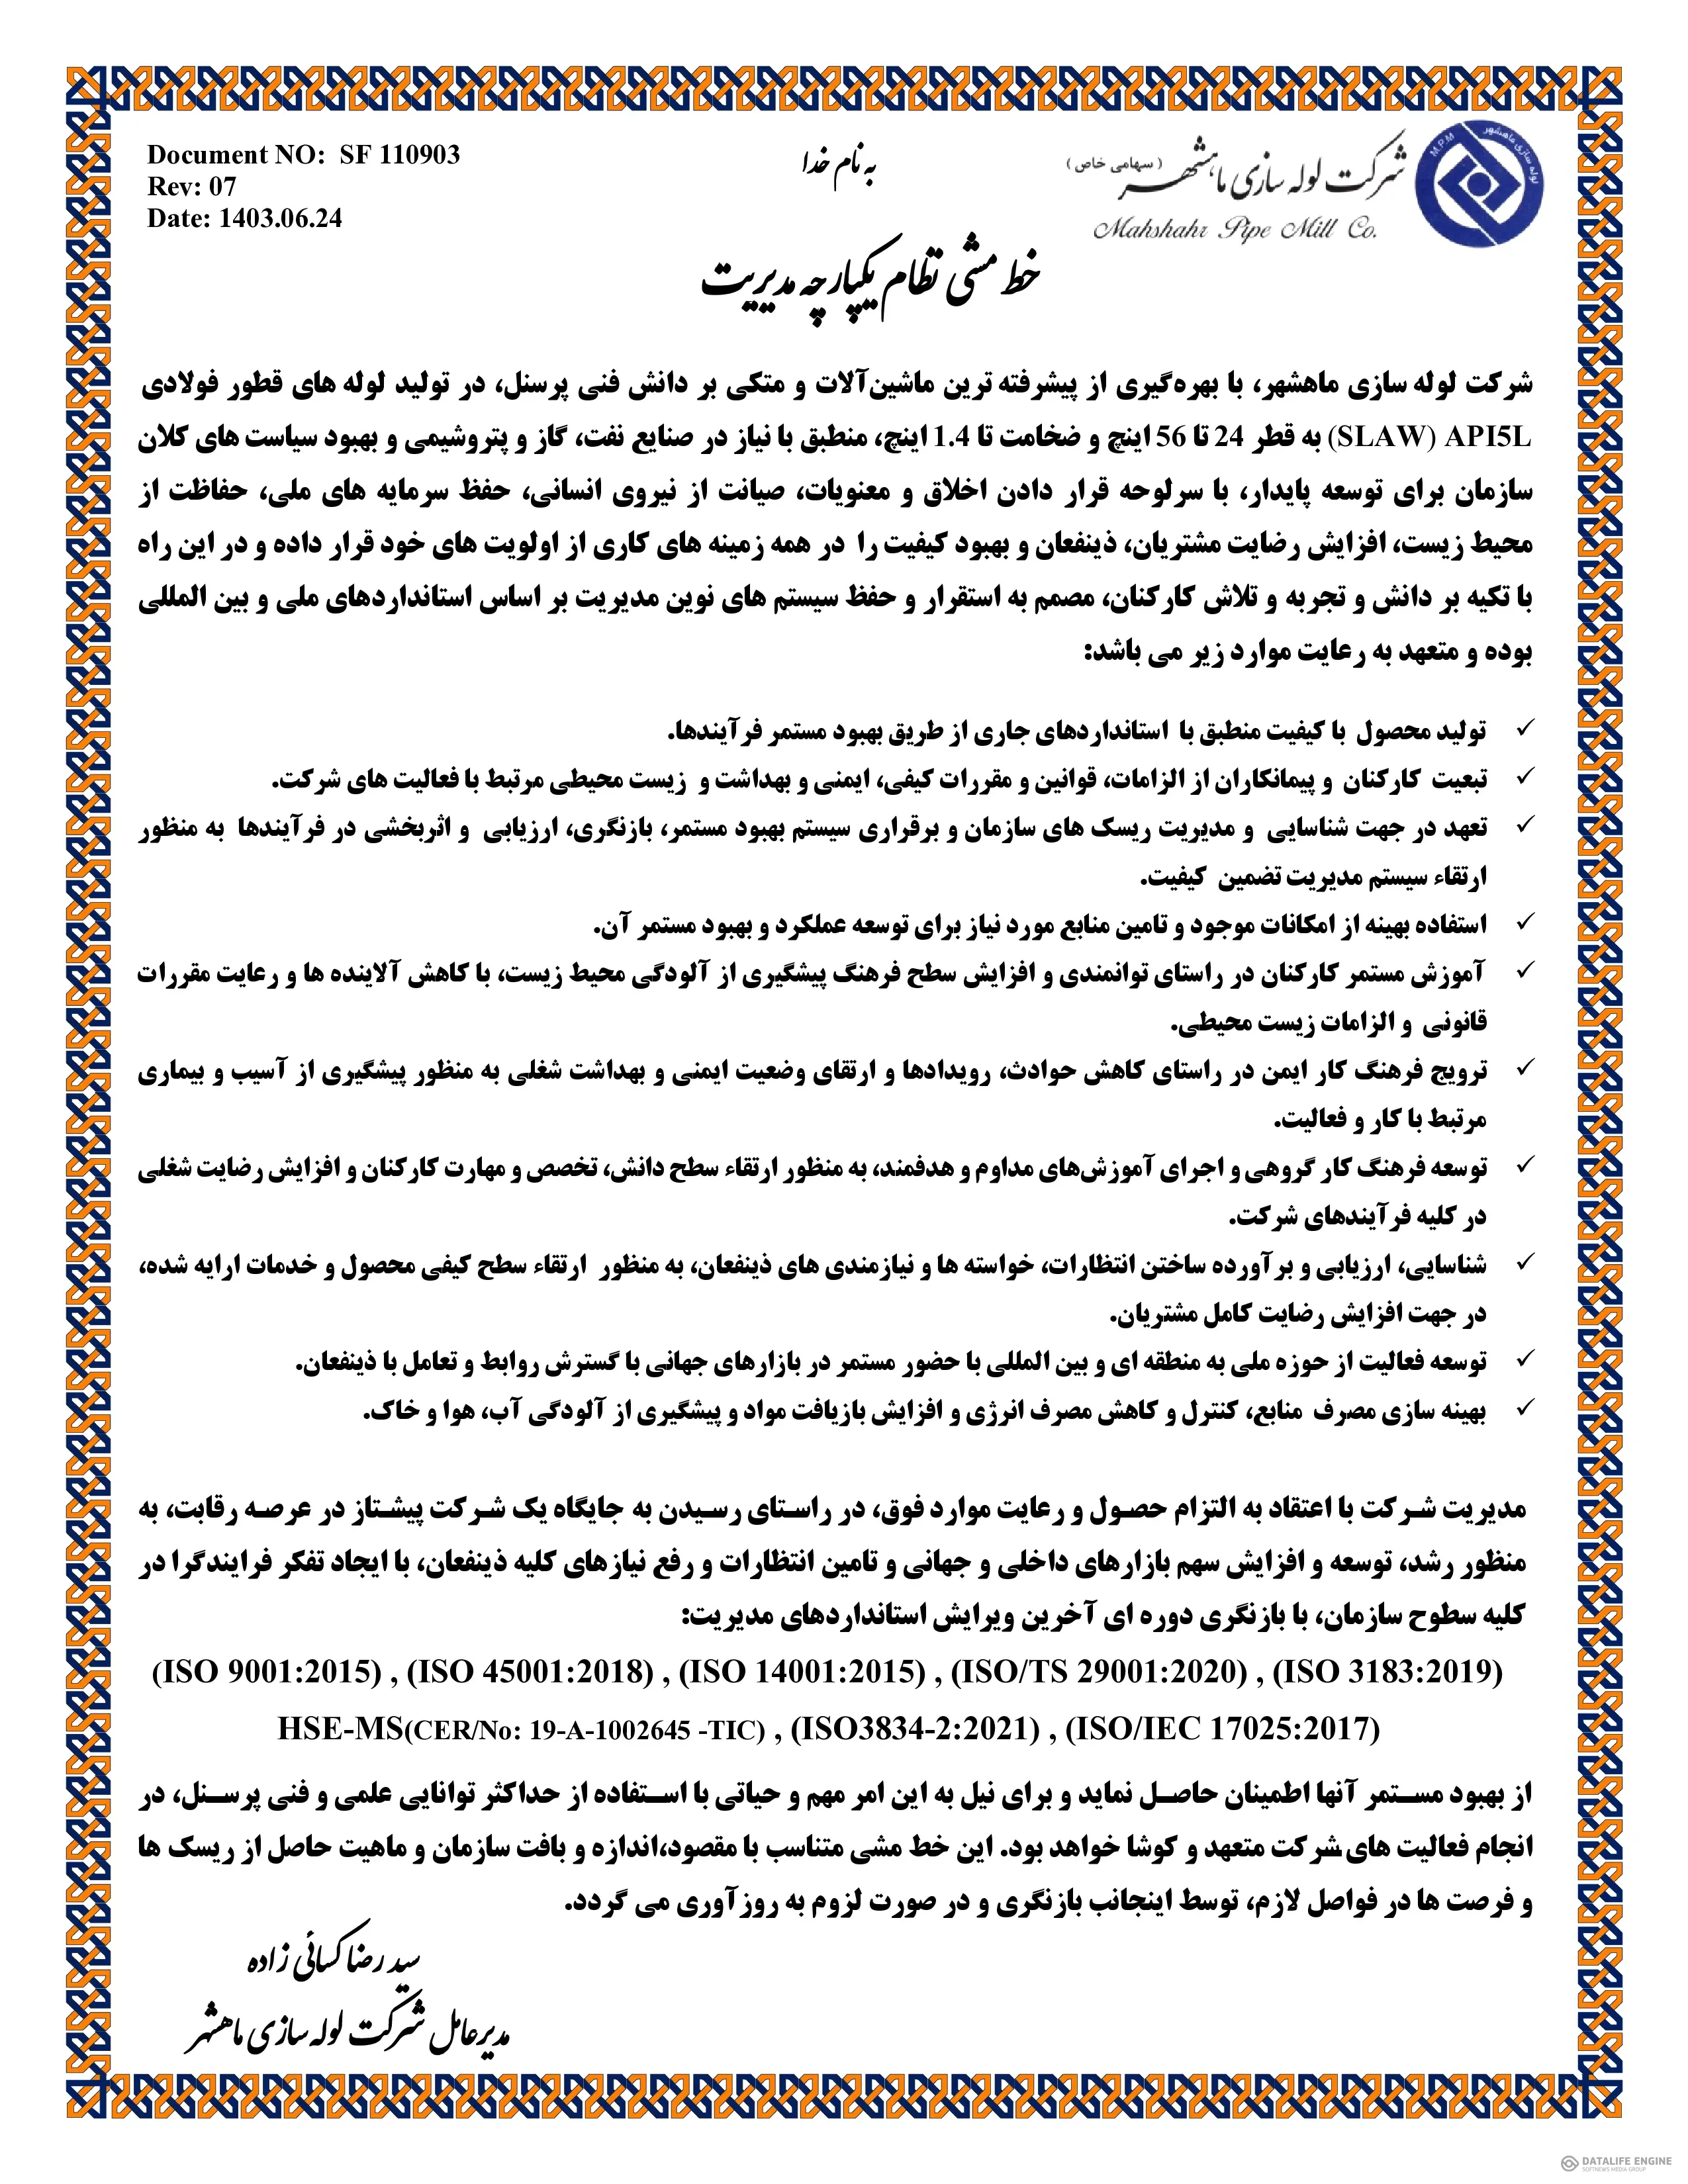 Document NO: SF 110903
Rev: 07
Date: 1403.06.24
به نام خدا
شرکت لوله سازی ماهشهر (سهامی خاص)
Mahshahr Pipe Mill Co.
لوله سازی ماهشهر
M.P.M
خط مشی نظام یکپارچه مدیریت
شرکت لوله سازی ماهشهر، با بهره‌گیری از پیشرفته ترین ماشین‌آلات و متکی بر دانش فنی پرسنل، در تولید لوله های قطور فولادی
API5L (SLAW) به قطر 24 تا 56 اینچ و ضخامت تا 1.4 اینچ، منطبق با نیاز در صنایع نفت، گاز و پتروشیمی و بهبود سیاست های کلان
سازمان برای توسعه پایدار، با سرلوحه قرار دادن اخلاق و معنویات، صیانت از نیروی انسانی، حفظ سرمایه های ملی، حفاظت از
محیط زیست، افزایش رضایت مشتریان، ذینفعان و بهبود کیفیت را در همه زمینه های کاری از اولویت های خود قرار داده و در این راه
با تکیه بر دانش و تجربه و تلاش کارکنان، مصمم به استقرار و حفظ سیستم های نوین مدیریت بر اساس استانداردهای ملی و بین المللی
بوده و متعهد به رعایت موارد زیر می باشد:
✓ تولید محصول با کیفیت منطبق با استانداردهای جاری از طریق بهبود مستمر فرآیندها.
✓ تبعیت کارکنان و پیمانکاران از الزامات، قوانین و مقررات کیفی، ایمنی و بهداشت و زیست محیطی مرتبط با فعالیت های شرکت.
✓ تعهد در جهت شناسایی و مدیریت ریسک های سازمان و برقراری سیستم بهبود مستمر، بازنگری، ارزیابی و اثربخشی در فرآیندها به منظور
ارتقاء سیستم مدیریت تضمین کیفیت.
✓ استفاده بهینه از امکانات موجود و تامین منابع مورد نیاز برای توسعه عملکرد و بهبود مستمر آن.
✓ آموزش مستمر کارکنان در راستای توانمندی و افزایش سطح فرهنگ پیشگیری از آلودگی محیط زیست، با کاهش آلاینده ها و رعایت مقررات
قانونی و الزامات زیست محیطی.
✓ ترویج فرهنگ کار ایمن در راستای کاهش حوادث، رویدادها و ارتقای وضعیت ایمنی و بهداشت شغلی به منظور پیشگیری از آسیب و بیماری
مرتبط با کار و فعالیت.
✓ توسعه فرهنگ کار گروهی و اجرای آموزش‌های مداوم و هدفمند، به منظور ارتقاء سطح دانش، تخصص و مهارت کارکنان و افزایش رضایت شغلی
در کلیه فرآیندهای شرکت.
✓ شناسایی، ارزیابی و برآورده ساختن انتظارات، خواسته ها و نیازمندی های ذینفعان، به منظور ارتقاء سطح کیفی محصول و خدمات ارایه شده،
در جهت افزایش رضایت کامل مشتریان.
✓ توسعه فعالیت از حوزه ملی به منطقه ای و بین المللی با حضور مستمر در بازارهای جهانی با گسترش روابط و تعامل با ذینفعان.
✓ بهینه سازی مصرف منابع، کنترل و کاهش مصرف انرژی و افزایش بازیافت مواد و پیشگیری از آلودگی آب، هوا و خاک.
مدیریت شرکت با اعتقاد به التزام حصول و رعایت موارد فوق، در راستای رسیدن به جایگاه یک شرکت پیشتاز در عرصه رقابت، به
منظور رشد، توسعه و افزایش سهم بازارهای داخلی و جهانی و تامین انتظارات و رفع نیازهای کلیه ذینفعان، با ایجاد تفکر فرایندگرا در
کلیه سطوح سازمان، با بازنگری دوره ای آخرین ویرایش استانداردهای مدیریت:
(ISO 9001:2015) , (ISO 45001:2018) , (ISO 14001:2015) , (ISO/TS 29001:2020) , (ISO 3183:2019)
HSE-MS(CER/No: 19-A-1002645 -TIC) , (ISO3834-2:2021) , (ISO/IEC 17025:2017)
از بهبود مستمر آنها اطمینان حاصل نماید و برای نیل به این امر مهم و حیاتی با استفاده از حداکثر توانایی علمی و فنی پرسنل، در
انجام فعالیت های شرکت متعهد و کوشا خواهد بود. این خط مشی متناسب با مقصود،اندازه و بافت سازمان و ماهیت حاصل از ریسک ها
و فرصت ها در فواصل لازم، توسط اینجانب بازنگری و در صورت لزوم به روزآوری می گردد.
سید رضا کسائی زاده
مدیرعامل شرکت لوله سازی ماهشهر
DATALIFE ENGINE
SOFTNEWS MEDIA GROUP